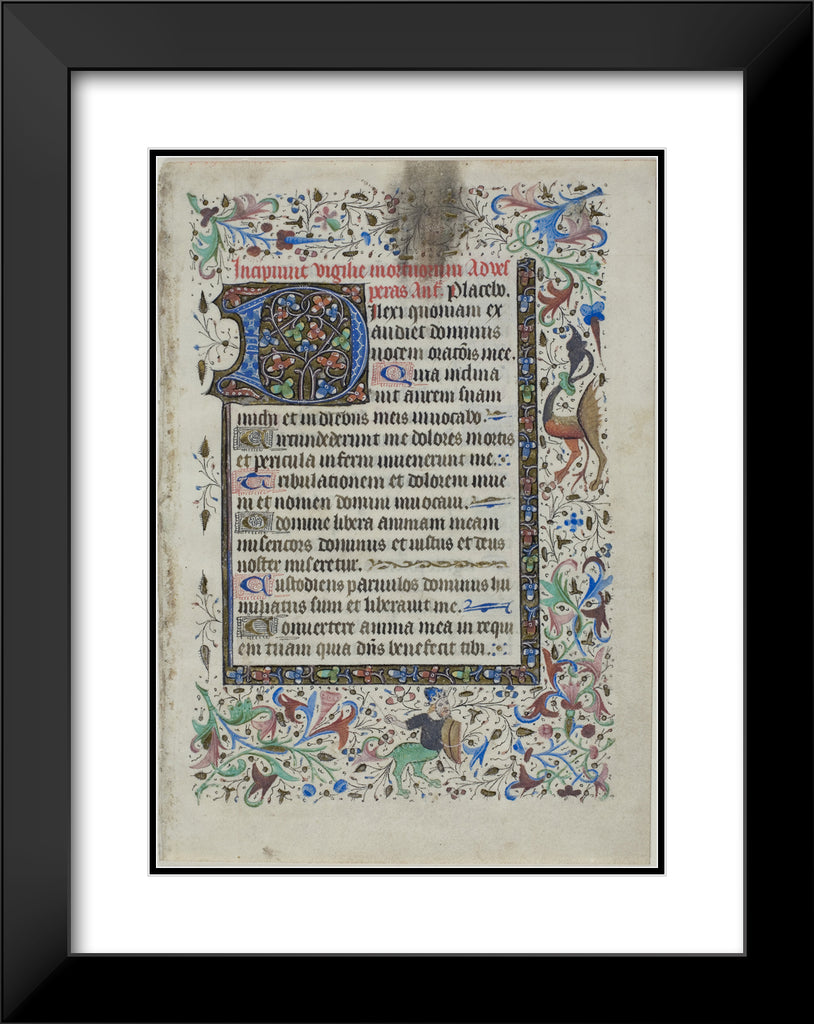 Incipiunt vigilie mortuorum Ad vel
peras Ant. Placebo.
Dilexi quoniam ex
audiet dominus
vocem orationis mee.
Quia inclina
uit aurem suam
michi et in diebus meis invocabo
Circumdederunt me dolores mortis
et pericula inferni invenerunt me.
Tribulationem et dolorem inve
ni et nomen domini invocavi.
O domine libera animam meam
misericors dominus et iustus et deus
noster miseretur.
Custodiens parvulos dominus hu
miliatus sum et liberavit me.
Convertere anima mea in requi
em tuam quia dns benefecit tibi.